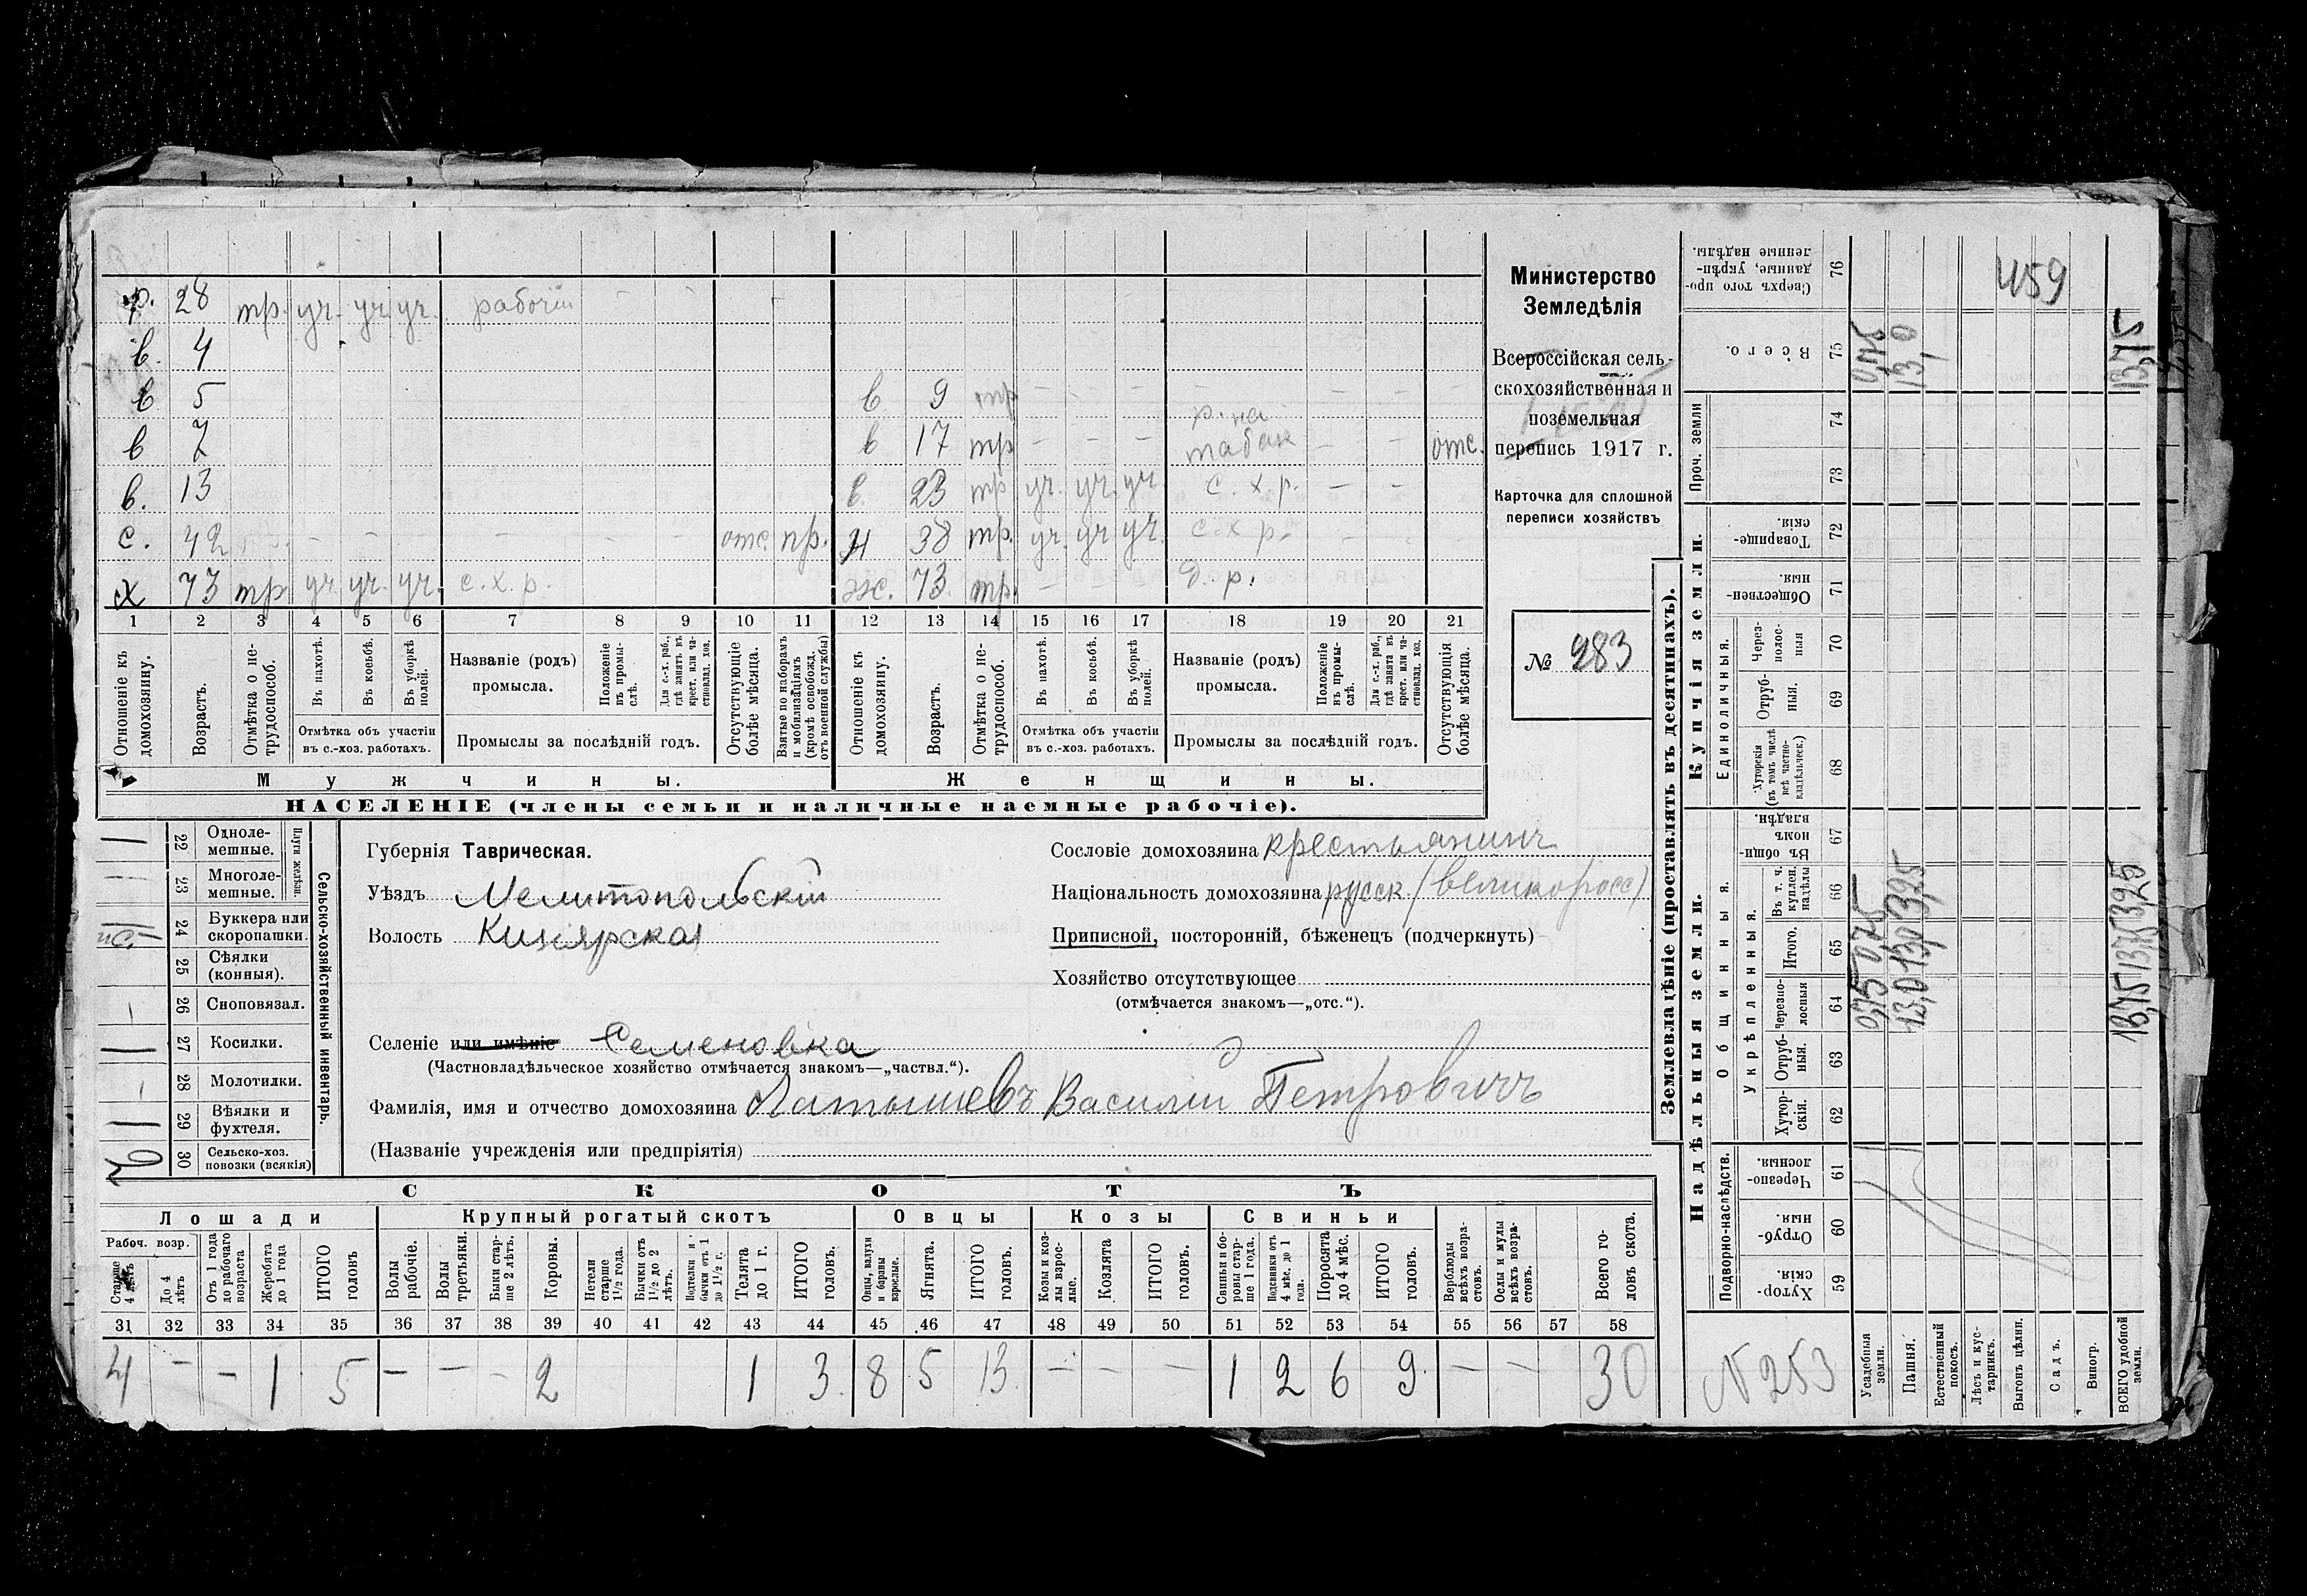 р. 28 тр. уч. уч. уч. рабочій
в. 4
в 5 в 9 тр
в 7 в 17 тр р. на табак отс.
в. 13 в. 23 тр уч. уч. уч. с. х. р.
с. 42 отс. пр. н 38 тр. уч. уч уч. с. х р.
х 73 тр уч. уч. уч. с. х. р. ж. 73 тр. д. р.
1 2 3 4 5 6 7 8 9 10 11 12 13 14 15 16 17 18 19 20 21
Отношеніе къ домохозяину.
Возрастъ.
Отмѣтка о не-трудоспособ.
Въ пахотѣ.
Въ косьбѣ.
Въ уборкѣ полей.
Отмѣтка объ участіи въ с.-хоз. работахъ.
Названіе (родъ) промысла.
Положеніе въ промы-слѣ.
Для с.-х. раб., гдѣ занятъ въ крест. или ча-стновлад. хоз.
Промыслы за послѣдній годъ.
Отсутствующіе болѣе мѣсяца.
Взятые по наборамъ и мобилизаціямъ (кромѣ освобожд. отъ военной службы)
Отношеніе къ домохозяину.
Возрастъ.
Отмѣтка о не-трудоспособ.
Въ пахотѣ.
Въ косьбѣ.
Въ уборкѣ полей.
Отмѣтка объ участіи въ с.-хоз. работахъ.
Названіе (родъ) промысла.
Положеніе въ промы-слѣ.
Для с.-х. раб., гдѣ занята въ крест. или ча-стновлад. хоз.
Промыслы за послѣдній годъ.
Отсутствующія болѣе мѣсяца.
Мужчины. Женщины.
НАСЕЛЕНІЕ (члены семьи и наличные наемные рабочіе).
Министерство
Земледѣлія
Всероссійская сель-
скохозяйственная и
поземельная
перепись 1917 г.
Карточка для сплошной
переписи хозяйствъ
№ 283
Сельско-хозяйственный инвентарь.
Плуги желѣзн.
22 Одноле-мешные. 1
23 Многоле-мешные.
24 Буккера или скоропашки.
25 Сѣялки (конныя).
26 Сноповязал. –
27 Косилки. 1
28 Молотилки. –
29 Вѣялки и фухтеля. 1
30 Сельско-хоз. повозки (всякія)
Губернія Таврическая.
Уѣздъ Мелитопольскій
Волость Кизіярская
Селеніе или имѣніе Семеновка
(Частновладѣльческое хозяйство отмѣчается знакомъ—„частвл.“).
Фамилія, имя и отчество домохозяина Латышевъ Василій Петровичъ
(Названіе учрежденія или предпріятія)
Сословіе домохозяина крестьянинъ
Національность домохозяина русск. (великоросс)
Приписной, посторонній, бѣженецъ (подчеркнуть)
Хозяйство отсутствующее
(отмѣчается знакомъ—„отс.“).
СКОТЪ
Лошади Крупный рогатый скотъ Овцы Козы Свиньи
Рабоч. возр.
Старше 4 лѣтъ
До 4 лѣтъ
Отъ 1 года до рабочаго возраста
Жеребята до 1 года
ИТОГО головъ
Волы рабочіе.
Волы третьяки.
Быки стар-ше 2 лѣтъ.
Коровы.
Нетели старше 1½ года.
Бычки отъ 1½ до 2 лѣтъ.
Подтелки и бычки отъ 1 до 1½ г.
Телята до 1 г.
ИТОГО головъ.
Овцы, валухи и бараны взрослые.
Ягнята.
ИТОГО головъ.
Козы и коз-лы взрос-лые.
Козлята
ИТОГО головъ.
Свиньи и бо-ровы стар-ше 1 года.
Подсвинки отъ 4 мѣс. до 1 года.
Поросята до 4 мѣс.
ИТОГО головъ.
Верблюды всѣхъ возра-стовъ.
Ослы и мулы всѣхъ возра-стовъ.
Всего го-ловъ скота.
31 32 33 34 35 36 37 38 39 40 41 42 43 44 45 46 47 48 49 50 51 52 53 54 55 56 57 58
4 – – 1 5 – – – 2 1 3. 8 5 13. – – – 1 2 6 9. – – 30
Землевладѣніе (проставлять въ десятинахъ).
Надѣльныя земли. Купчія земли.
Подворно-наслѣдств.
Общинныя.
Укрѣпленныя.
Единоличныя.
Проч. земли
Хутор-скія. 59
Отруб-ныя. 60
Черезпо-лосныя. 61
Хутор-скія. 62
Отруб-ныя. 63
Черезпо-лосныя 64
Итого. 65
Въ т. ч. куплен. надѣлы 66
Въ общи-номъ владѣн. 67
Хуторскія (въ томъ числѣ всѣ частно-владѣльческ.) 68
Отруб-ныя. 69
Через-полос-ныя 70
Обществен-ныя. 71
Товарище-скія. 72
73
74
Всего. 75
Сверхъ того про-данные, укрѣп-ленные надѣлы. 76
Усадебныя земли. 0,75 0,75 0,75
Пашня. 13,0 13,0 3,25 13,0
Естественный покосъ.
Лѣсъ и кус-тарникъ.
Выгонъ цѣлин.
Садъ.
Виногр.
ВСЕГО удобной земли. 13,75 13,75 3,25 13,75
459
N 253